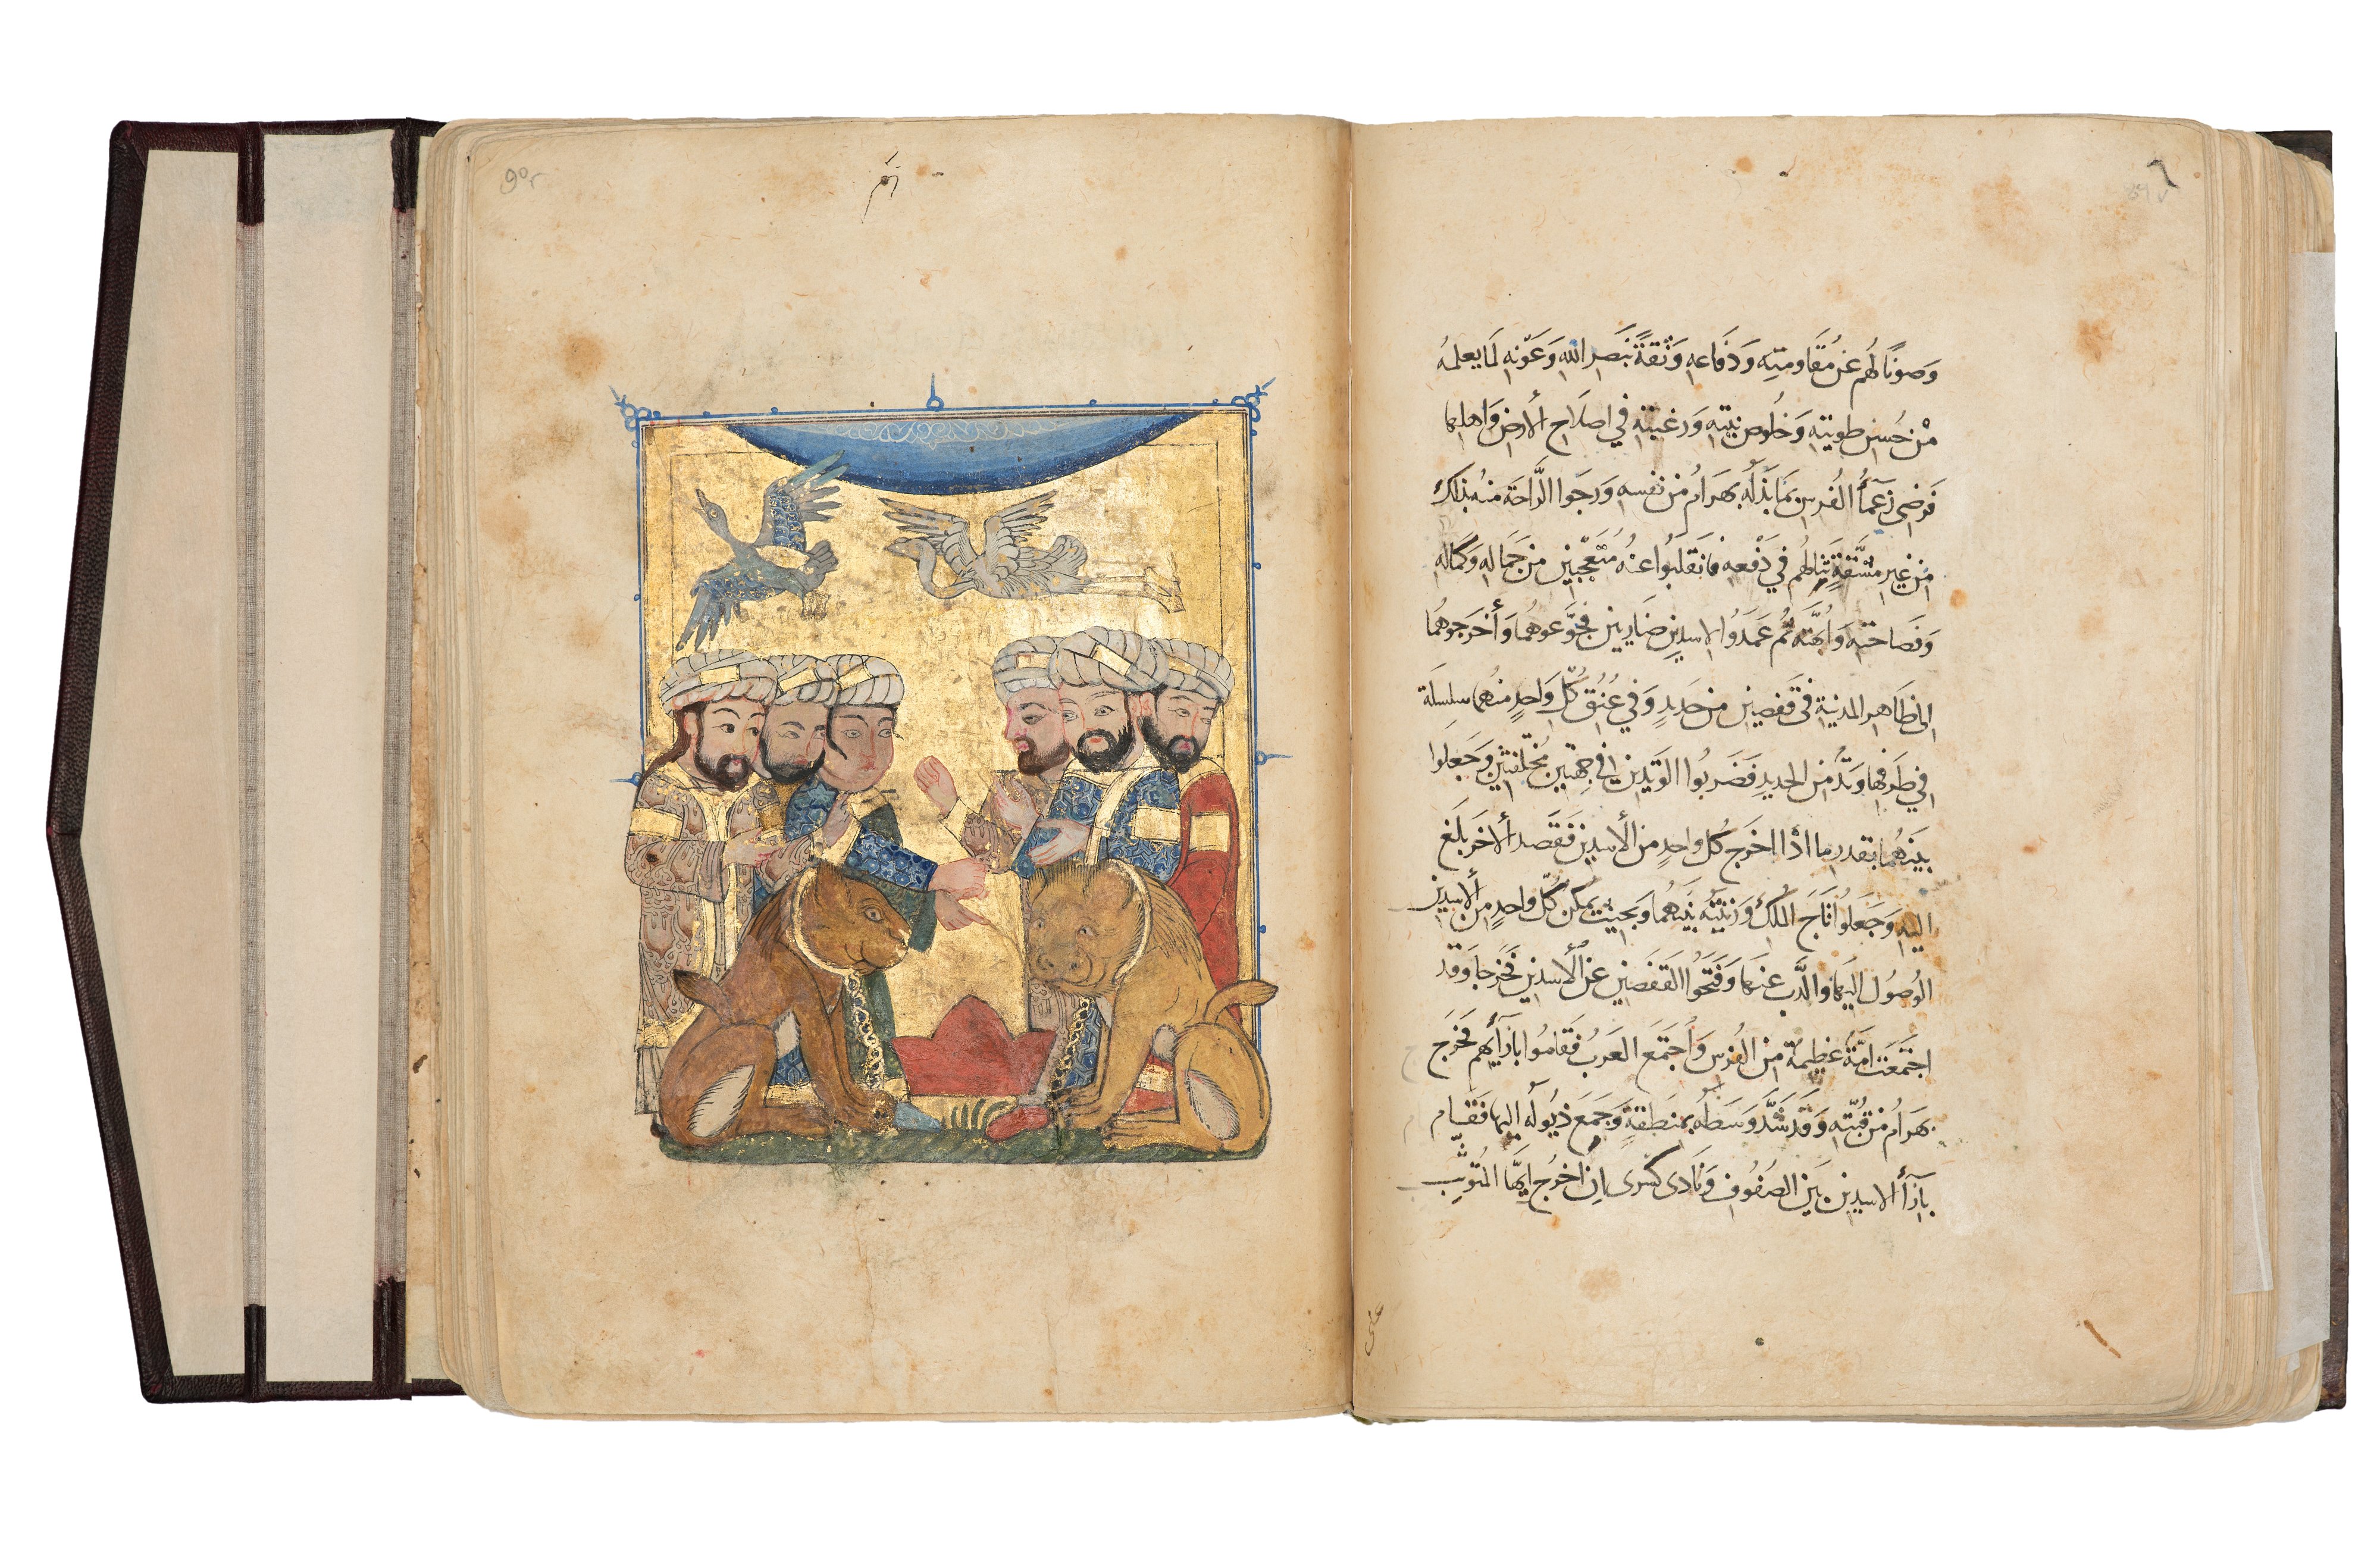 وَصَونًا لَهُم عَن مُقَاومتِهِ وَدِفَاعه وَثقةً بنَصرِ اللهِ وَعَونِهِ لَمَا يعلمُهُ
مْن حُسنِ طويّتهِ وَخُلوص نيّتِهِ وَرغبَتهِ في اصلَاحِ الأرضِ وَاهلِها
فَرضِى زُعَمآءُ الفُرس بمَا بَذَلَهُ بهرَامُ من نفسِه وَرجَوا الرَّاحَة منهُ بذلكَ
من غير مَشَقّةٍ تنَالهُم في دَفعِه فانقلَبُوا عنهُ مُتعَجّبينَ من جَمَالهِ وَكمَالهِ
وَفصَاحتِهِ وَأُبهّتِه ثُم عَمدُوا لاسدينِ ضَاريينِ فجَوَّعوهُمَا وَأخرَجوهُمَا
الى ظَاهرِ المدينةِ في قفصَينِ من حَديدٍ وَفي عُنُقِ كُلّ وَاحدٍ منهُما سلسلَة
في طرفِها وَتدٌ منَ الحديدِ فضَربُوا الوَتدينِ في جهَتينِ مُختلفتَينِ وَجَعلوا
بينهُما بقدر ما اذا اخرَج كُل واحدٍ من الأسدينِ فقَصد الأخرَ بلغَ
اليهِ وَجَعلُوا تَاجَ المُلكِ وَزينتَهُ بينَهُما وَبحيثُ يمكن كُلّ واحدٍ من الأسدين
الوصُولُ اليهَا وَالذَّب عنهَا وَفتَحُوا القفصَينِ عن الأسدينِ فخرَجا وَقد
اجتَمَعَت امّةٌ عَظيمةٌ من الفُرس وَاجتَمَع العَربُ فقامُوا بازآئِهم فخرَجَ
بهرَامُ من قُبّتهِ وَقد شدَّ وَسَطهُ بمنطقةٍ وَجَمَعَ ذيُولَهُ اليها فقَام
بازآءِ الاسدين بَين الصفُوفِ وَنَادى كسرَى بان اخرُج ايّهَا المُتوثِّب
90r
89v